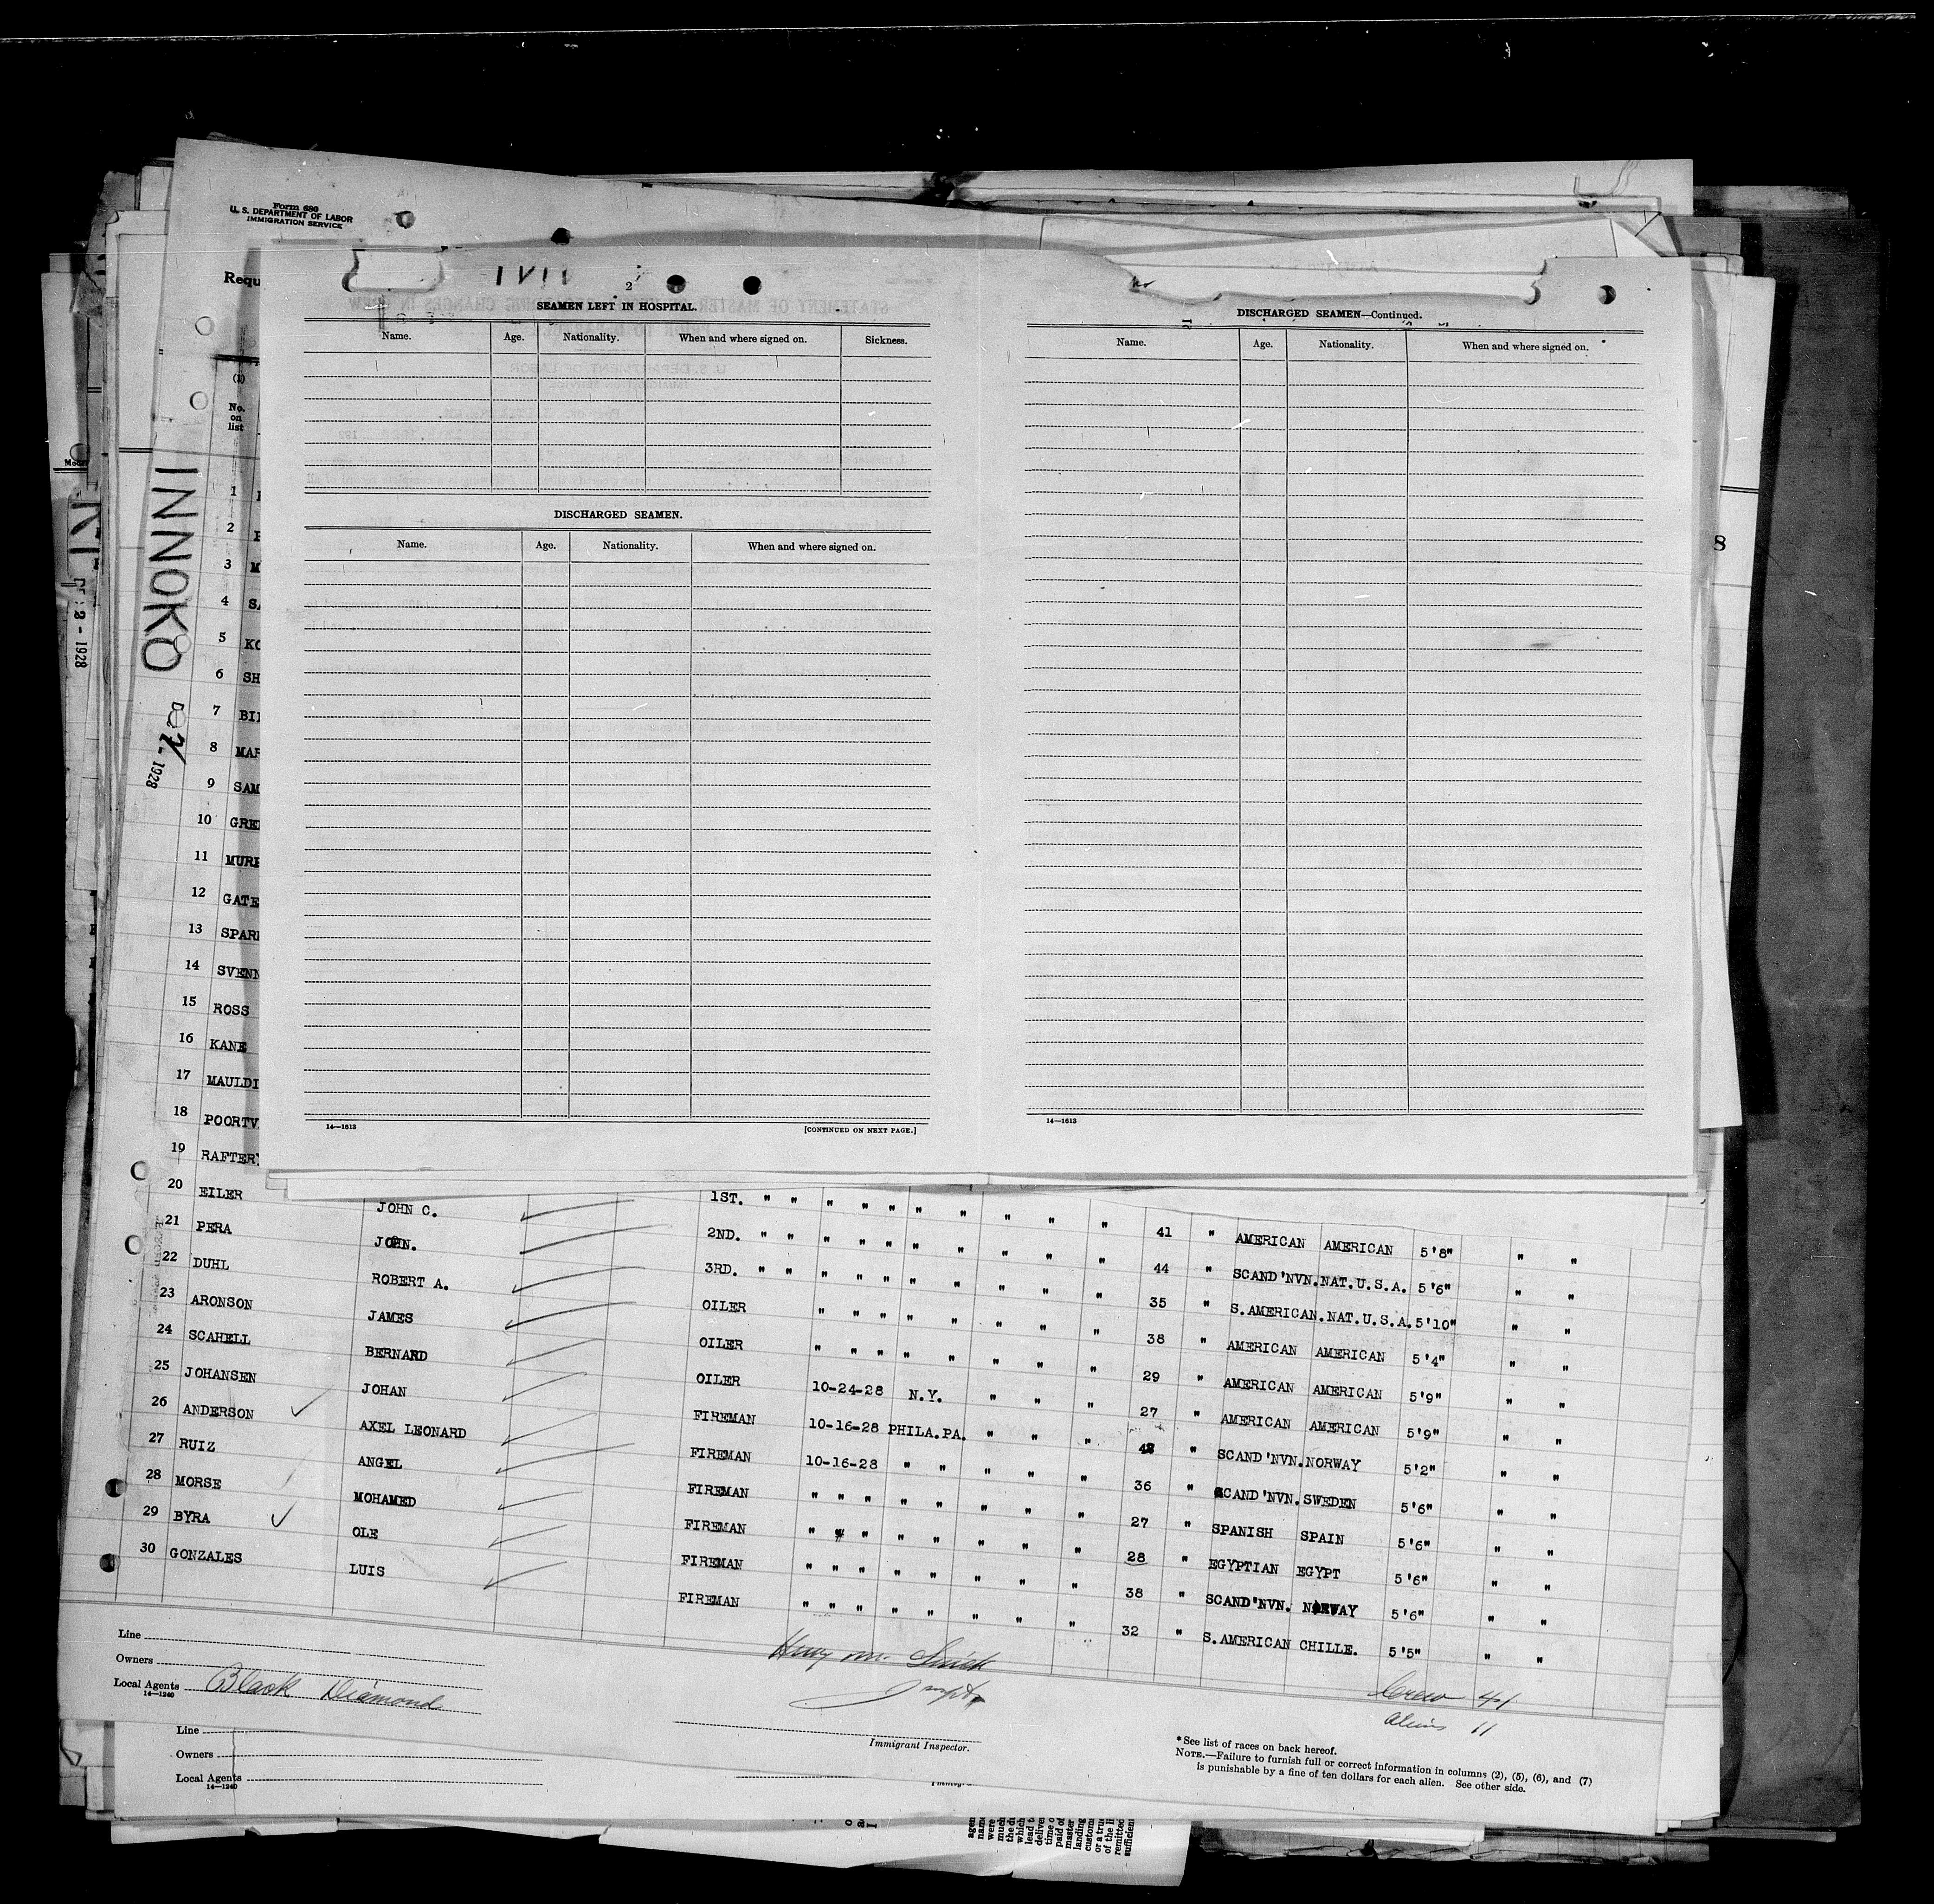 Form 680
U. S. DEPARTMENT OF LABOR
IMMIGRATION SERVICE
Requ
(1)
No. on list
INNOKO
1928
2 - 1928
8
2
SEAMEN LEFT IN HOSPITAL.
Name. Age. Nationality. When and where signed on. Sickness.
DISCHARGED SEAMEN.
Name. Age. Nationality. When and where signed on.
14—1613 [CONTINUED ON NEXT PAGE.]
DISCHARGED SEAMEN—Continued.
Name. Age. Nationality. When and where signed on.
14—1613
1
2
3 M
4 SA
5 KO
6 SH
7 BI
8 MAR
9 SAM
10 GRE
11 MUR
12 GATE
13 SPAR
14 SVENN
15 ROSS
16 KANE
17 MAULDI
18 POORTV
19 RAFTERY 1ST. " " " " " " " " " " 41 " AMERICAN AMERICAN 5'8" " "
20 EILER JOHN C. 2ND. " " " " " " " " " " 44 " SCAND'NVN. NAT.U.S.A. 5'6" " "
21 PERA JOHN. 3RD. " " " " " " " " " " 35 " S.AMERICAN. NAT.U.S.A. 5'10" " "
22 DUHL ROBERT A. OILER " " " " " " " " 38 " AMERICAN AMERICAN 5'4" " "
23 ARONSON JAMES OILER " " " " " " " " 29 " AMERICAN AMERICAN 5'9" " "
24 SCAHELL BERNARD OILER 10-24-28 N.Y. " " " 27 " AMERICAN AMERICAN 5'9" " "
25 JOHANSEN JOHAN FIREMAN 10-16-28 PHILA.PA. " " " " SCAND'NVN. NORWAY 5'2" " "
26 ANDERSON AXEL LEONARD FIREMAN 10-16-28 " " " " " 36 " SCAND'NVN. SWEDEN 5'6" " "
27 RUIZ ANGEL FIREMAN " " " " " " " " 27 " SPANISH SPAIN 5'6" " "
28 MORSE MOHAMED FIREMAN " " " " " " " " 28 " EGYPTIAN EGYPT 5'6" " "
29 BYRA OLE FIREMAN " " " " " " " " 38 " SCAND'NVN. NORWAY 5'6" " "
30 GONZALES LUIS FIREMAN " " " " " " " " 32 " S.AMERICAN CHILLE. 5'5" " "
Line
Owners
Local Agents Black Diamond
14—1240
Crew 41
Aliens 11
Immigrant Inspector.
*See list of races on back hereof.
NOTE.—Failure to furnish full or correct information in columns (2), (5), (6), and (7)
is punishable by a fine of ten dollars for each alien. See other side.
Line
Owners
Local Agents
14—1240